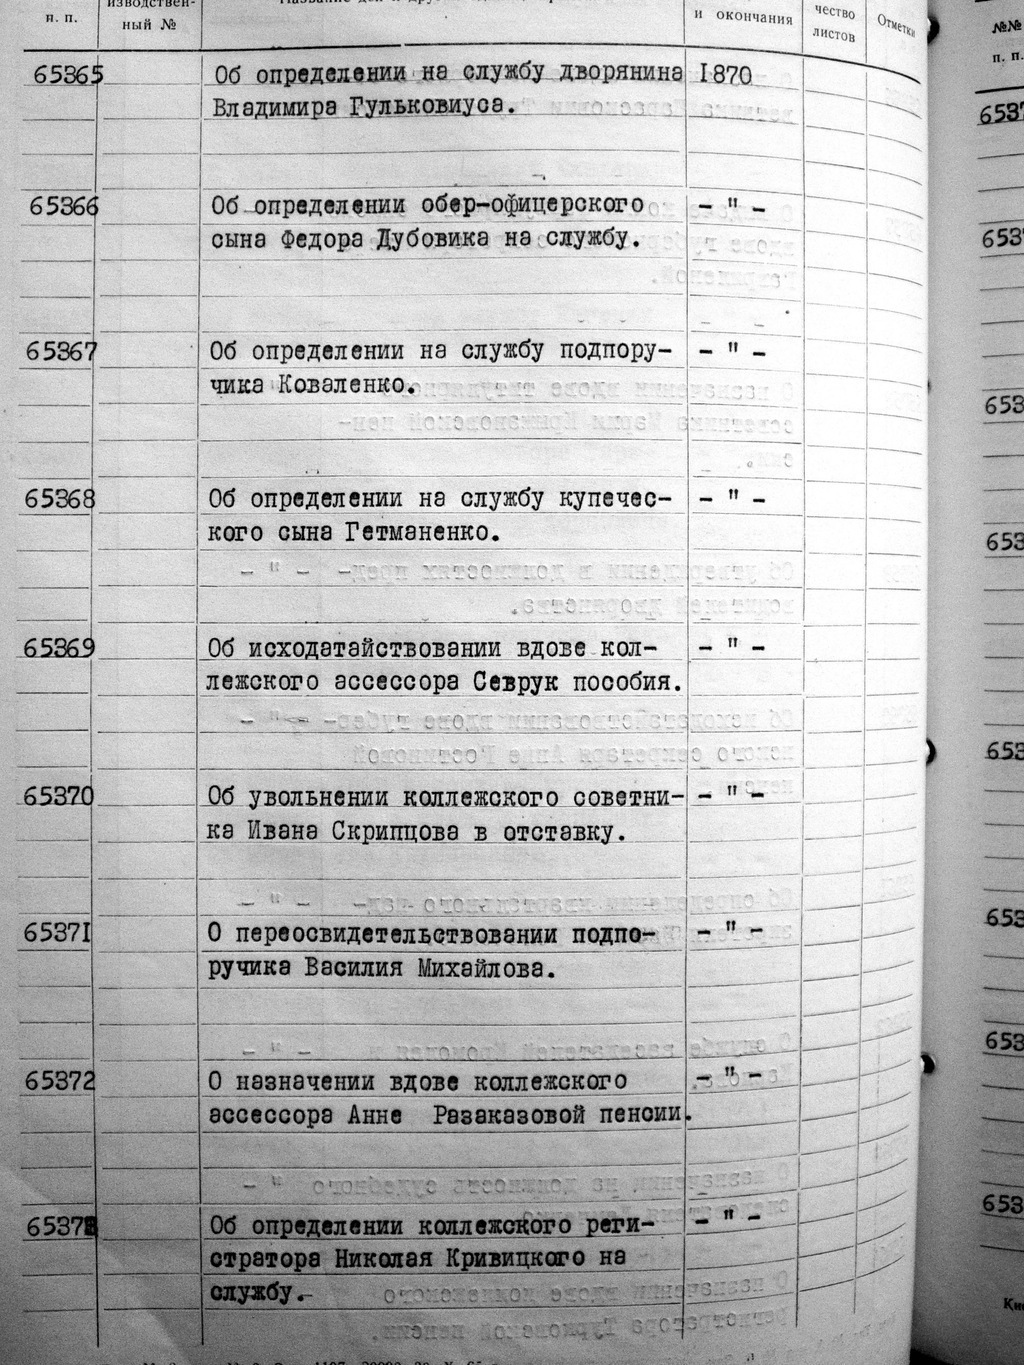 н. п.
ный №
и окончания
чество
листов
Отметки
65365 Об определении на службу дворянина 1870
Владимира Гульковиуса.
65366 Об определении обер-офицерского - " -
сына Федора Дубовика на службу.
65367 Об определении на службу подпору- - " -
чика Коваленко.
65368 Об определении на службу купечес- - " -
кого сына Гетманенко.
65369 Об исходатайствовании вдове кол- - " -
лежского ассессора Севрук пособия.
65370 Об увольнении коллежского советни- - " -
ка Ивана Скрипцова в отставку.
65371 О переосвидетельствовании подпо- - " -
ручика Василия Михайлова.
65372 О назначении вдове коллежского - " -
ассессора Анне Разаказовой пенсии.
65373 Об определении коллежского реги- - " -
стратора Николая Кривицкого на
службу.
№№
п. п.